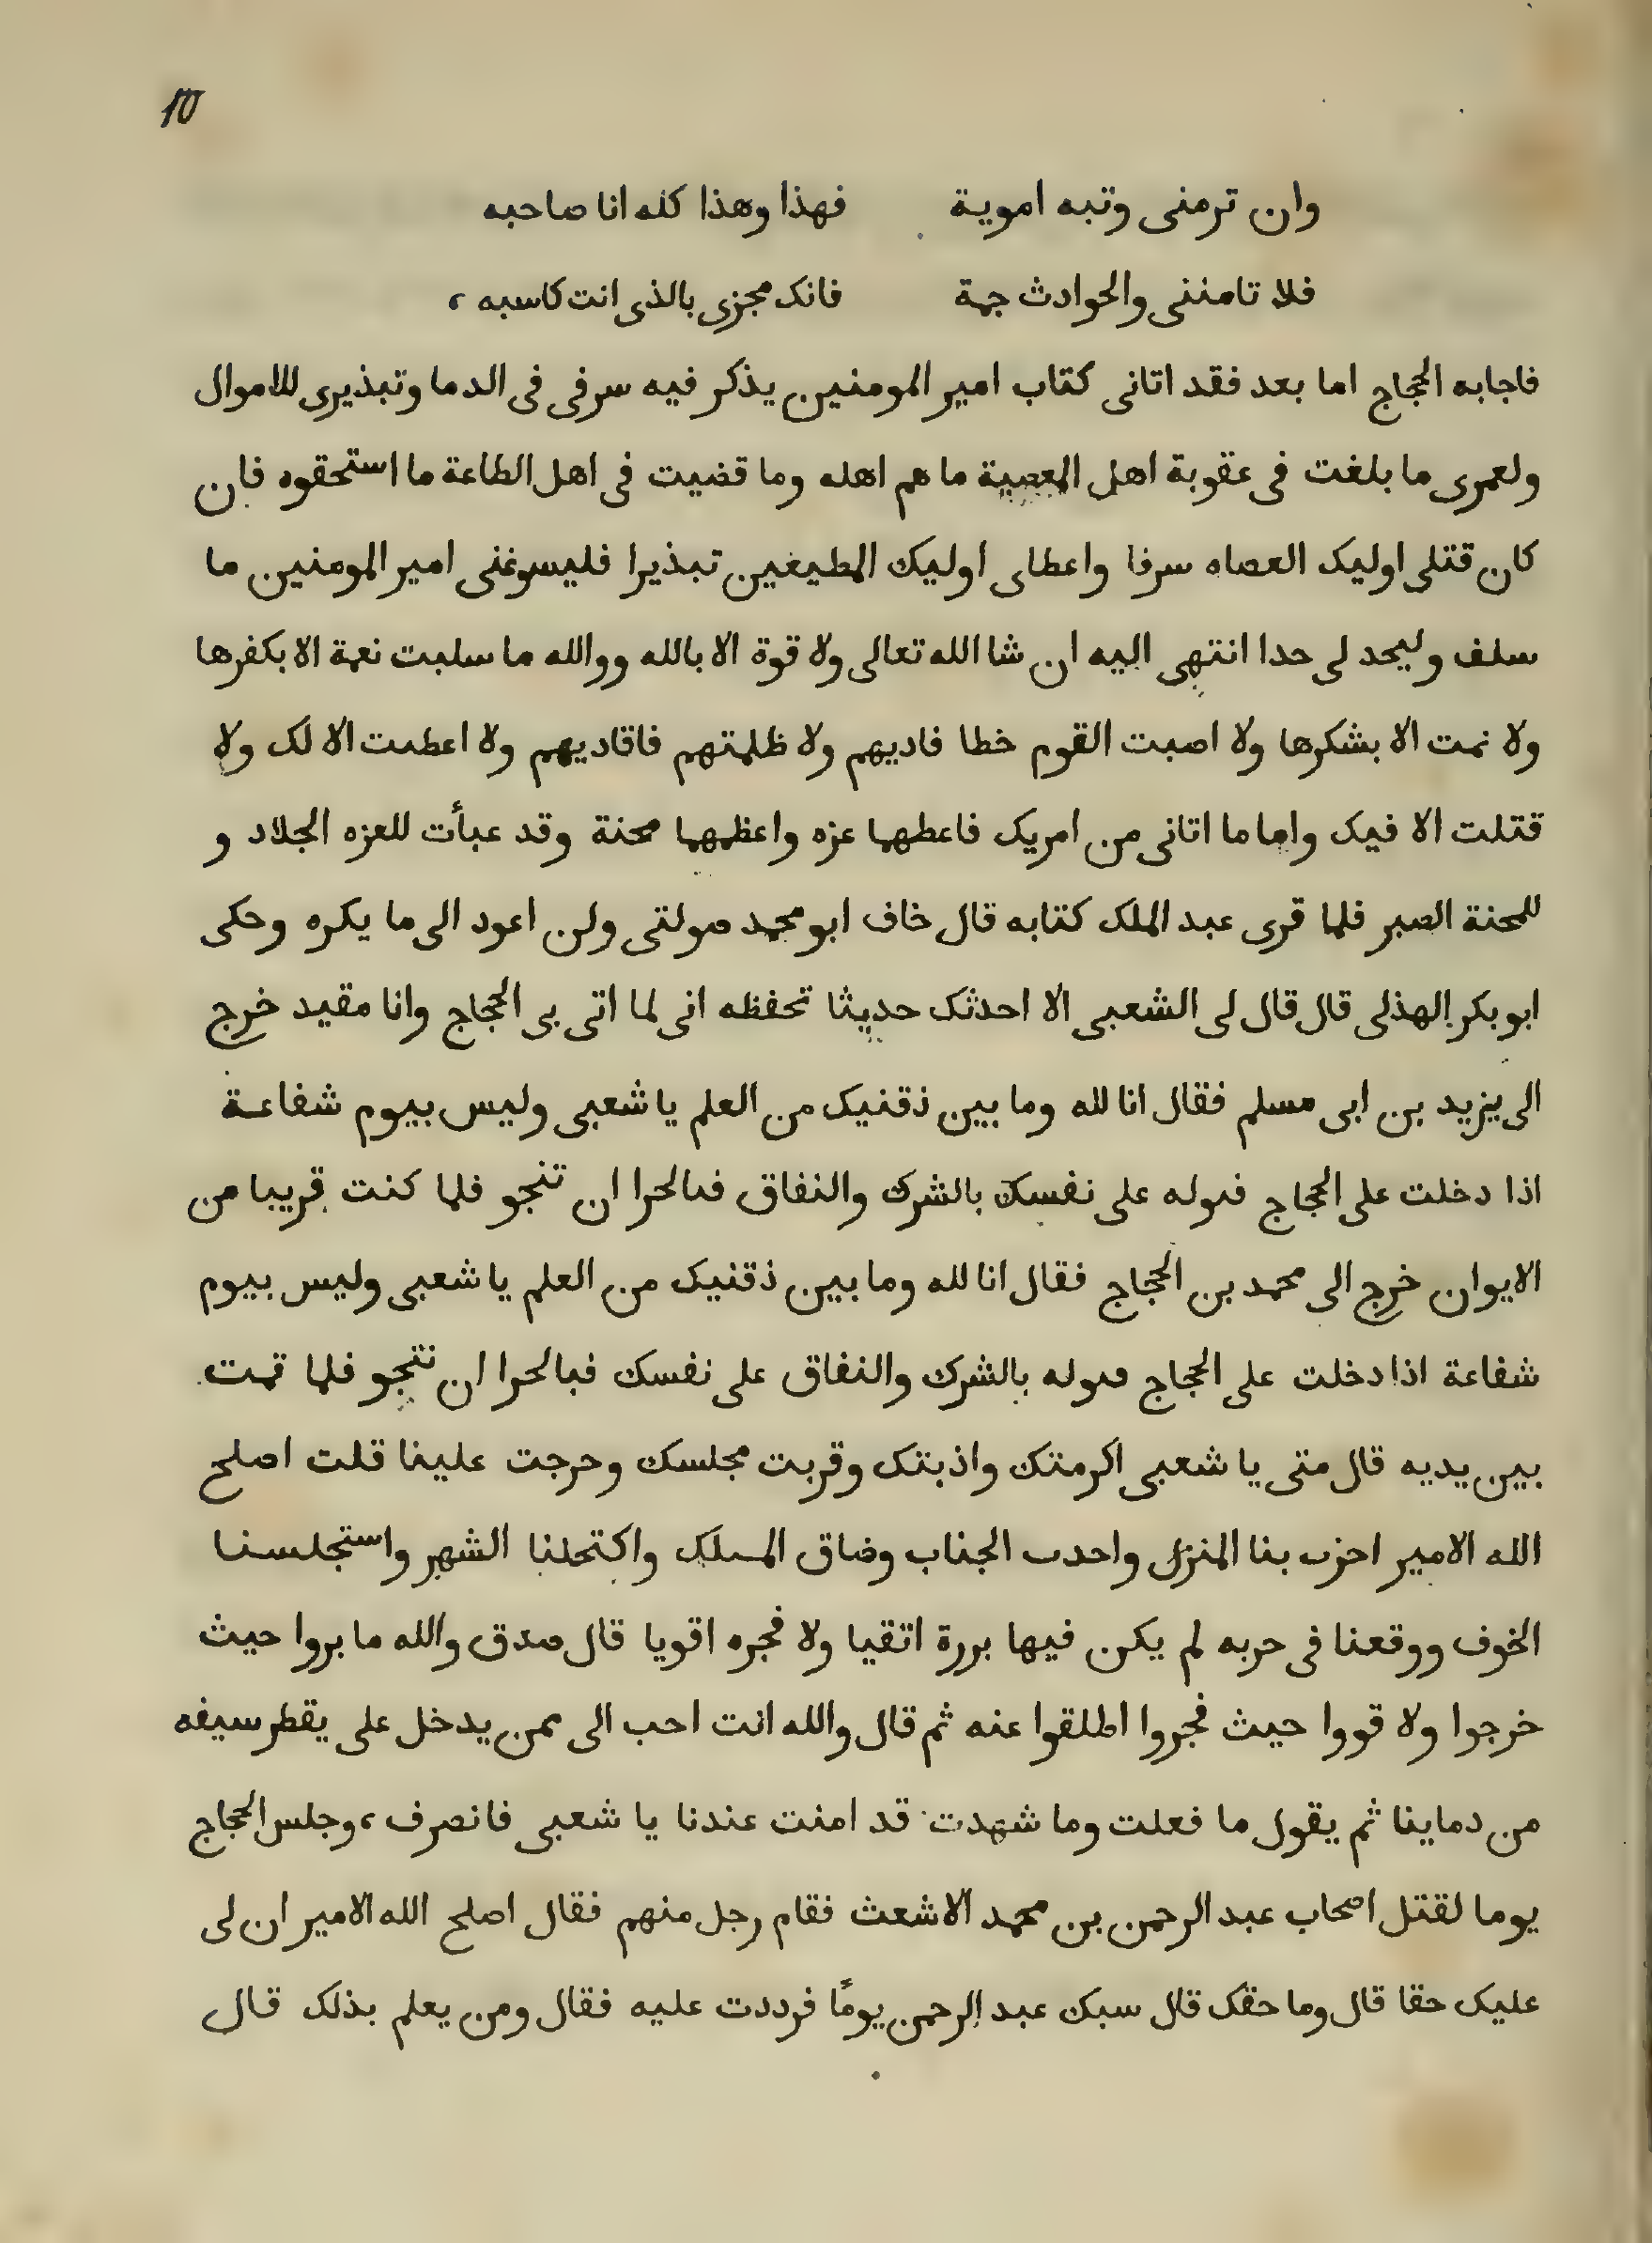 10
وان ترمنى وتبه اموية فهذا وهذا كله انا صاحبه
فلا تامننى والحوادث جمة فانك مجزى بالذى انت كاسبه ،
فاجابه الحجاج اما بعد فقد اتانى كتاب امير المومنين يذكر فيه سرفى فى الدما وتبذيرى للاموال
ولعمرى ما بلغت فى عقوبة اهل المعصية ما هم اهله وما قضيت فى اهل الطاعة ما استحقوه فان
كان قتلى اوليك العصاه سرفا واعطاى اوليك المطيعين تبذيرا فليسوغنى امير المومنين ما
سلف وليحد لى حدا انتهى اليه ان شا الله تعالى ولا قوة الا بالله ووالله ما سلبت نعمة الا بكفرها
ولا نمت الا بشكرها ولا اصبت القوم خطا فاديهم ولا ظلمتهم فاقاديهم ولا اعطيت الا لك ولا
قتلت الا فيك واما ما اتانى من امريك فاعطهما عزه واعظمهما محنة وقد عبأت للعزه الجلاد و
للمحنة الصبر فلما قرى عبد الملك كتابه قال خاف ابو محمد صولتى ولن اعود الى ما يكره وحكى
ابو بكر الهذلى قال قال لى الشعبى الا احدثك حديثا تحفظه انى لما اتى بى الحجاج وانا مقيد خرج
الى يزيد بن ابى مسلم فقال انا لله وما بين ذقنيك من العلم يا شعبى وليس بيوم شفاعة
اذا دخلت على الحجاج فبوله على نفسك بالشرك والنفاق فبالحرا ان تنجو فلما كنت قريبا من
الايوان خرج الى محمد بن الحجاج فقال انا لله وما بين ذقنيك من العلم يا شعبى وليس بيوم
شفاعة اذا دخلت على الحجاج فبوله بالشرك والنفاق على نفسك فبالحرا ان تنجو فلما قمت
بين يديه قال متى يا شعبى اكرمتك واذبتك وقربت مجلسك وحرجت علينا قلت اصلح
الله الامير احزب بنا المنزل واجدب الجناب وضاق المسلك واكتحلنا الشهر واستجلسنا
الخوف ووقعنا فى حربه لم يكن فيها بررة اتقيا ولا فجره اقويا قال صدق والله ما بروا حيث
خرجوا ولا قووا حيث فجروا اطلقوا عنه ثم قال والله انت احب الى ممن يدخل على يقطر سيفه
من دماينا ثم يقول ما فعلت وما شهدت قد امنت عندنا يا شعبى فانصرف ، وجلس الحجاج
يوما لقتل اصحاب عبد الرحمن بن محمد الاشعث فقام رجل منهم فقال اصلح الله الامير ان لى
عليك حقا قال وما حقك قال سبك عبد الرحمن يومًا فرددت عليه فقال ومن يعلم بذلك قال